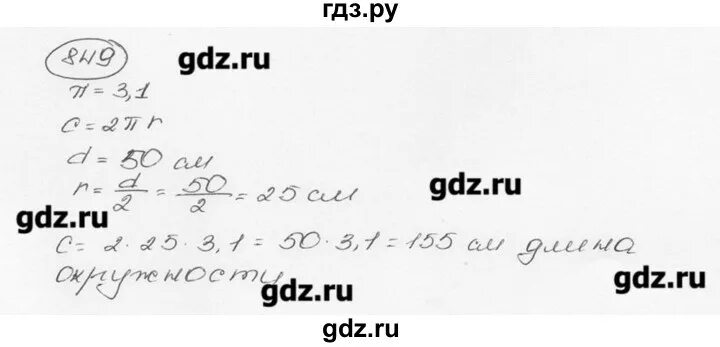 гдз.ру
849
gdz.ru
π = 3,1
C = 2πr
d = 50 см
r = d/2 = 50/2 = 25 см
gdz.ru
gdz.ru
C = 2 · 25 · 3,1 = 50 · 3,1 = 155 см длина
окружности
gdz.ru
gdz.ru
gdz.ru